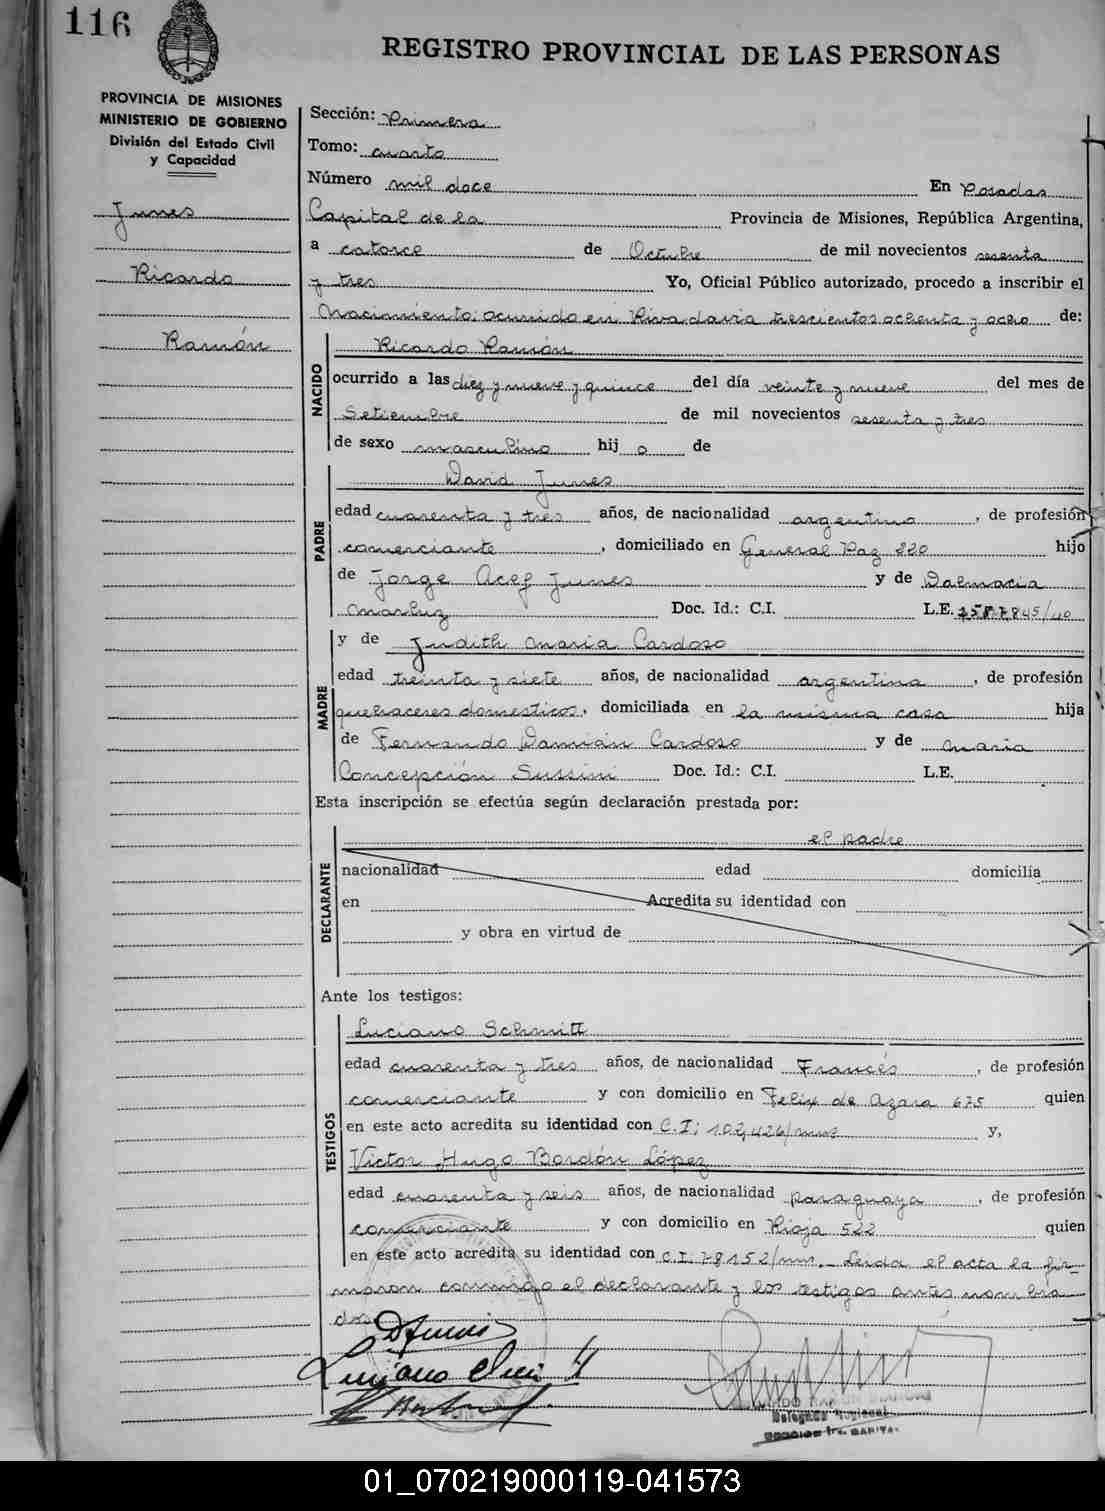 116
REGISTRO PROVINCIAL DE LAS PERSONAS
PROVINCIA DE MISIONES
MINISTERIO DE GOBIERNO
División del Estado Civil
y Capacidad
Junes
Ricardo
Ramón
Sección: Primera
Tomo: cuarto
Número mil doce En Posadas
Capital de la Provincia de Misiones, República Argentina,
a catorce de Octubre de mil novecientos sesenta
y tres Yo, Oficial Público autorizado, procedo a inscribir el
Nacimiento: ocurrido en Rivadavia trescientos ochenta y ocho de:
NACIDO
Ricardo Ramón
ocurrido a las diez y nueve y quince del día veinte y nueve del mes de
Setiembre de mil novecientos sesenta y tres
de sexo masculino hij o de
PADRE
David Junes
edad cuarenta y tres años, de nacionalidad argentino, de profesión
comerciante, domiciliado en General Paz 220 hijo
de Jorge Acef Junes y de Dalmacia
Doc. Id.: C.I. L.E.
MADRE
y de Judith Maria Cardoso
edad treinta y siete años, de nacionalidad argentina, de profesión
quehaceres domesticos, domiciliada en la misma casa hija
de Fernando Damián Cardoso y de Maria
Concepción Sussini Doc. Id.: C.I. L.E.
Esta inscripción se efectúa según declaración prestada por:
DECLARANTE
el padre
nacionalidad edad domicilia
en Acredita su identidad con
y obra en virtud de
Ante los testigos:
TESTIGOS
Luciano Schmitt
edad cuarenta y tres años, de nacionalidad Francés, de profesión
comerciante y con domicilio en Felix de Azara 675 quien
en este acto acredita su identidad con C.I: 102,426/mnes y,
Victor Hugo Bordón López
edad cuarenta y seis años, de nacionalidad paraguaya, de profesión
comerciante y con domicilio en Rioja 522 quien
en este acto acredita su identidad con C.I. 78152/mns. Leida el acta la fir-
maron conmigo el declarante y los testigos antes nombra-
dos
Luciano
Delegado Regional
01_070219000119-041573